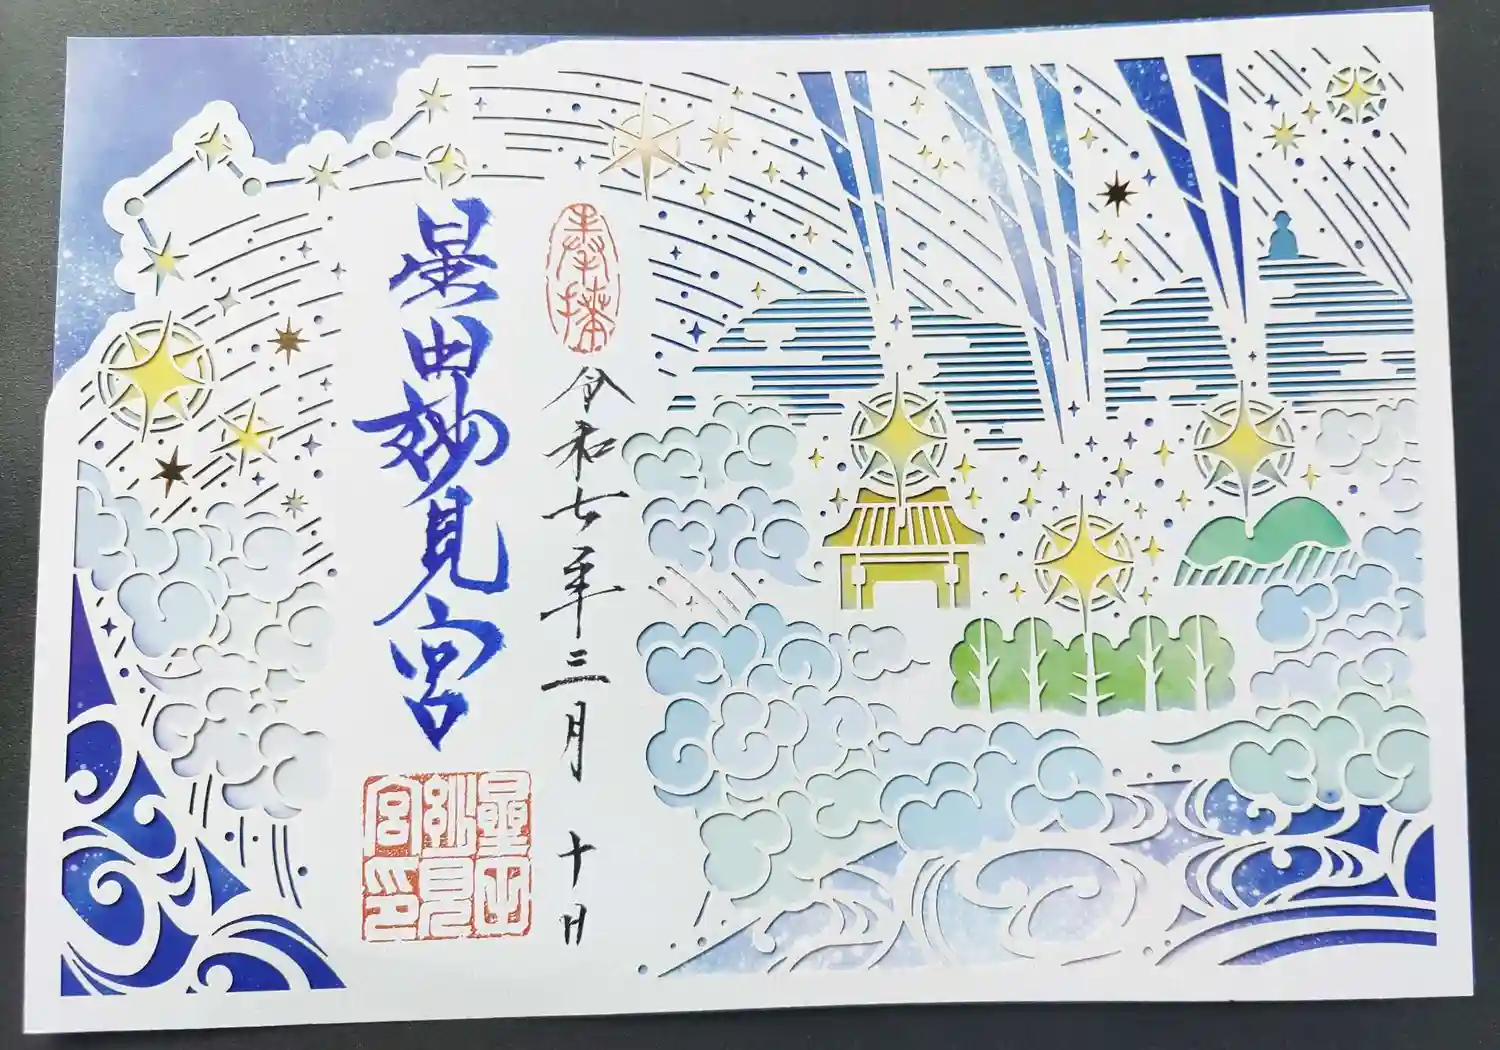 奉拝
令和七年三月十日
星田妙見宮
星田妙見宮印